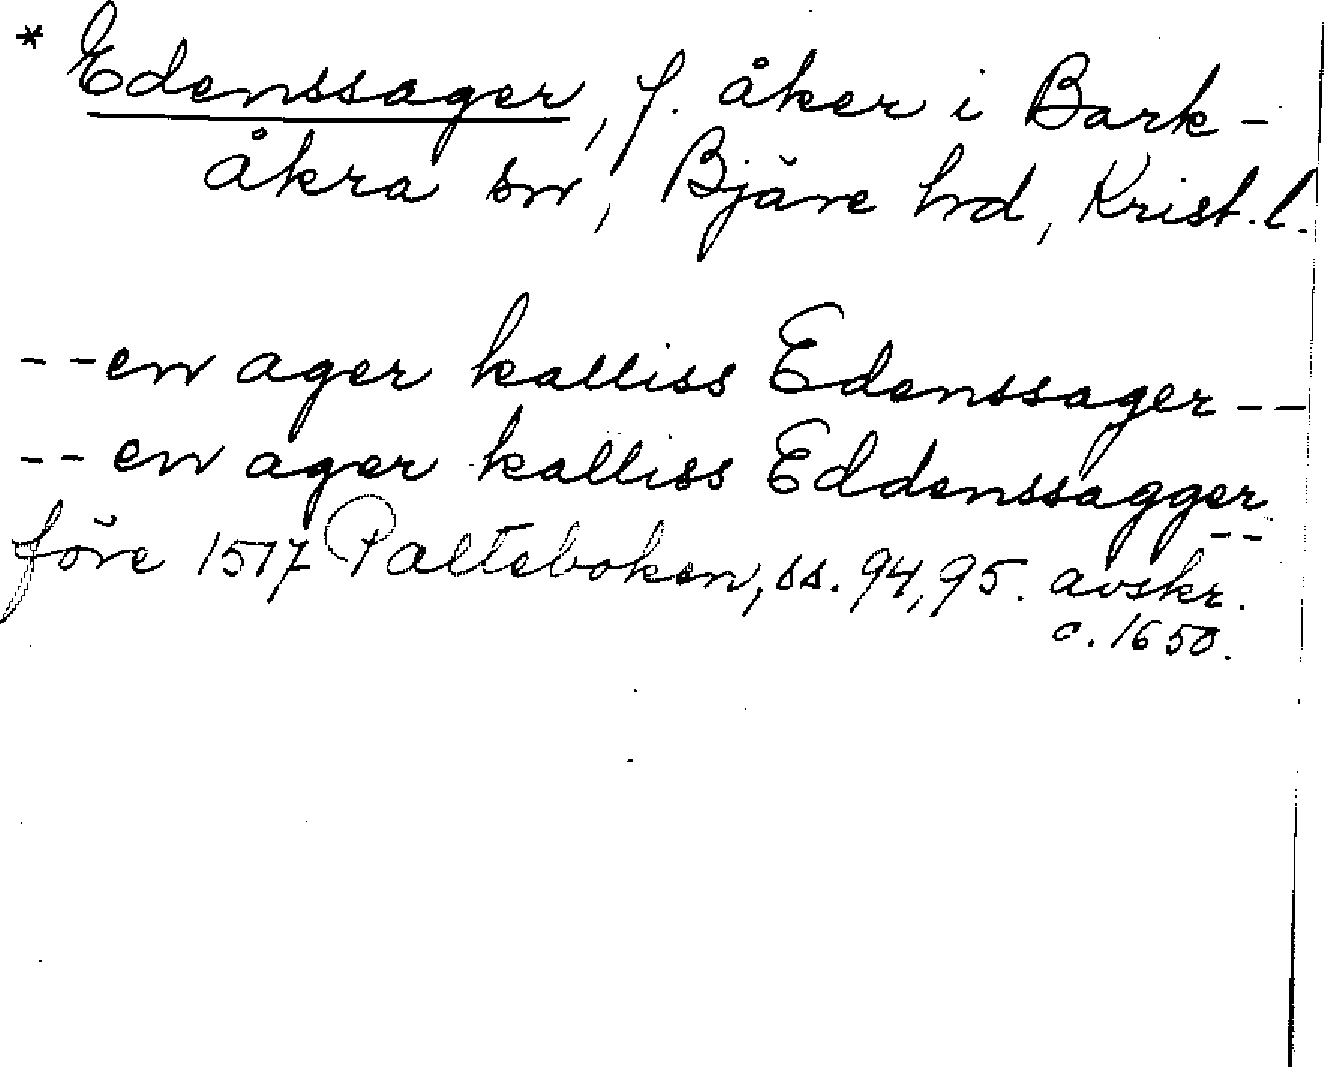 * Edenssager, f. åker i Bark-
åkra sn, Bjäre hd, Krist. l.
--en ager kalliss Edenssager--
--en ager kalliss Eddenssagger
--
före 1517 Palteboken, ss. 94, 95. avskr.
c. 1650.